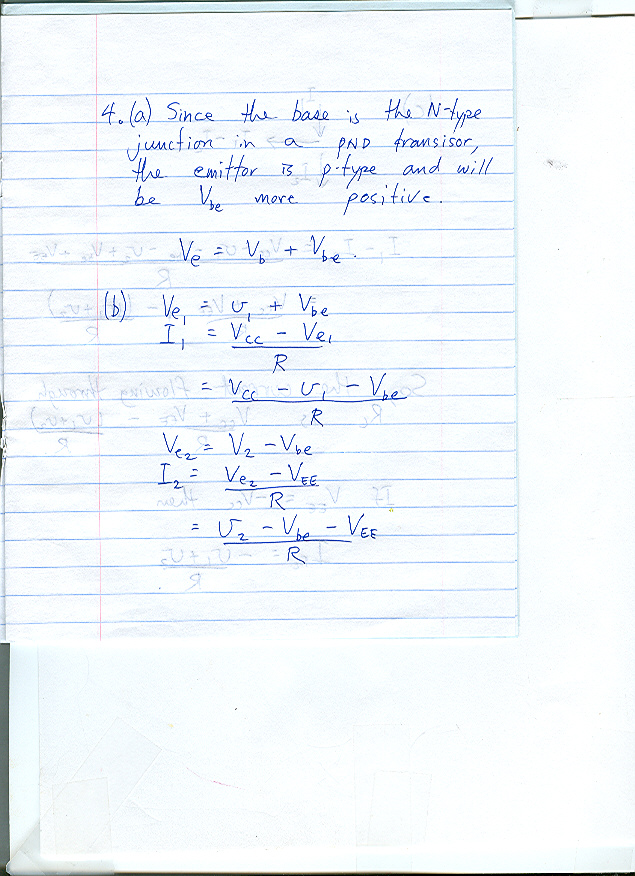 4. (a) Since the base is the N-type
junction in a PND transisor,
the emittor is p-type and will
be Vbe more positive.
Ve = Vb + Vbe.
(b) Ve1 = υ1 + Vbe
I1 = Vcc - Ve1
R
= Vcc - υ1 - Vbe
R
Ve2 = V2 - Vbe
I2 = Ve2 - VEE
R
= υ2 - Vbe - VEE
R